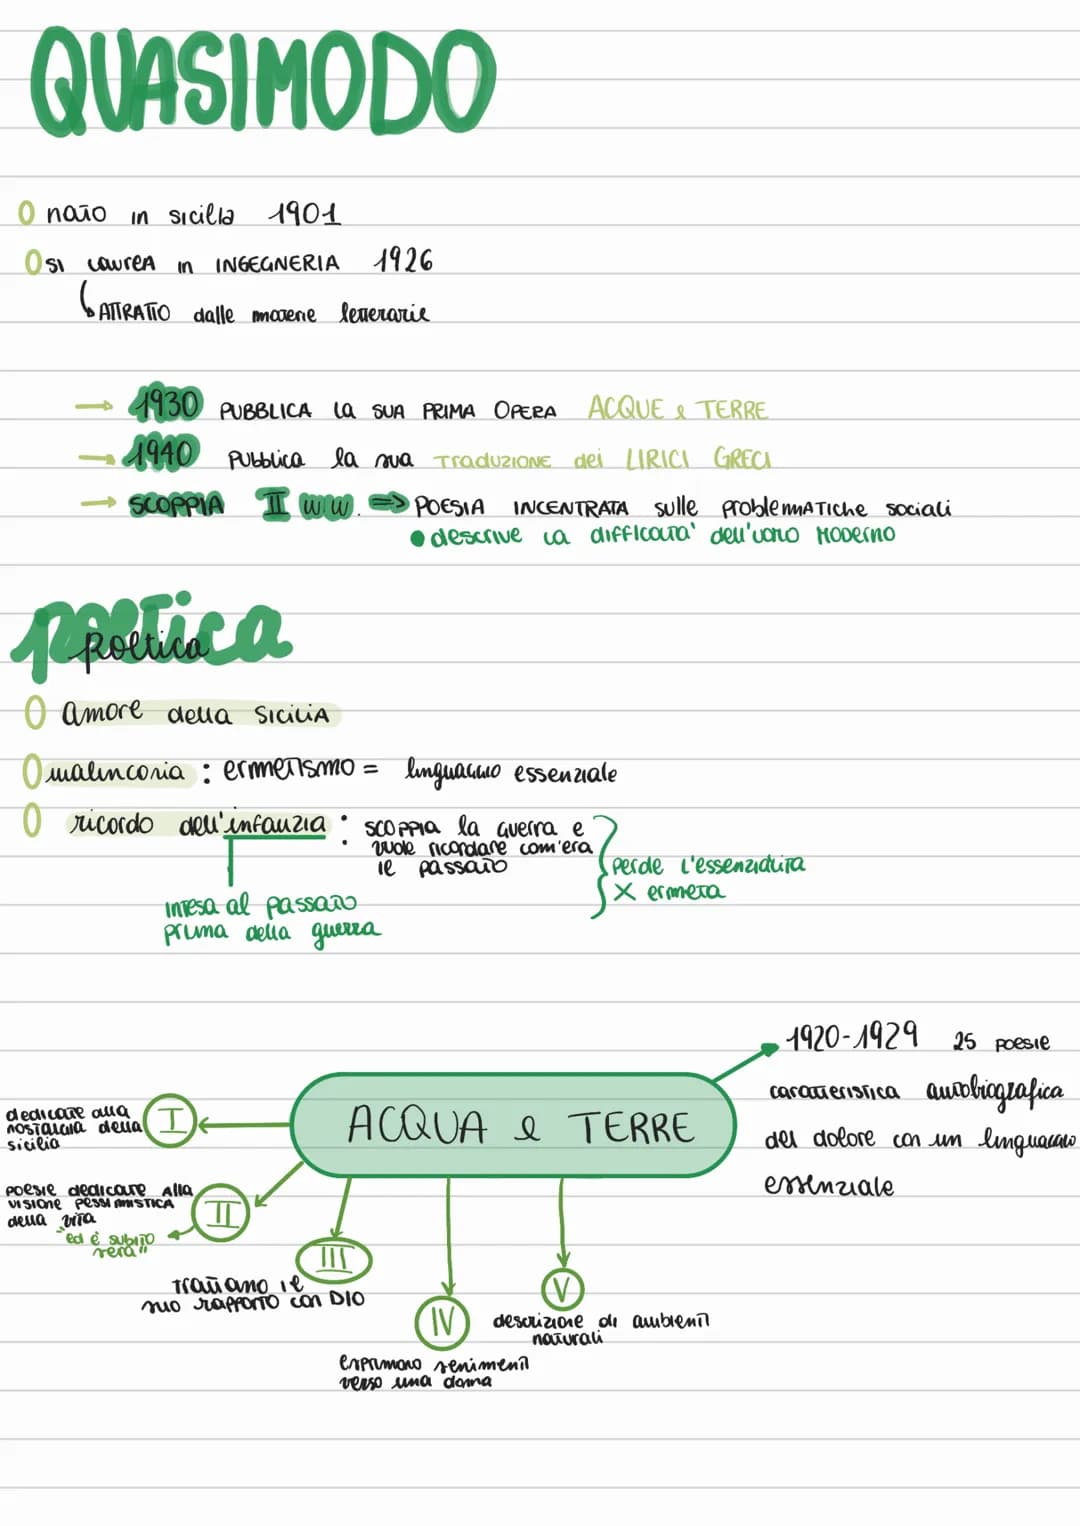 QUASIMODO
nato in sicilia 1901
si laurea in INGEGNERIA 1926
ATTRATTO dalle materie letterarie
→ 1930 PUBBLICA la SUA PRIMA OPERA ACQUE e TERRE
→ 1940 Pubblica la sua TRADUZIONE dei LIRICI GRECI
→ SCOPPIA II WW. => POESIA INCENTRATA sulle problemMATICHE sociali
• descrive la difficoltà dell'uomo MODERNO
poetica
Poetica
amore della SICILIA
malinconia : ermetismo = linguaggio essenziale
ricordo dell'infanzia : SCOPPIA la guerra e
vuole ricordare com'era
il passato
perde l'essenzialità
X ermeta
intesa al passato
prima della guerra
1920-1929 25 POESIE
caratteristica autobiografica
del dolore con un linguaggio
essenziale
ACQUA e TERRE
I
dedicate alla
nostalgia della
sicilia
II
POESIE dedicate Alla
visione PESSIMISTICA
della vita
"ed è subito
sera"
III
Trattano il
suo rapporto con DIO
IV
esprimono senimenti
verso una donna
V
descrizione di ambienti
naturali